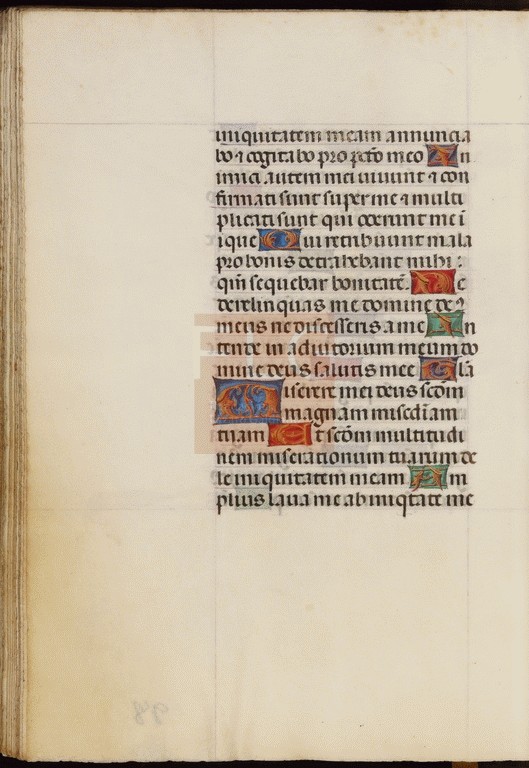 iniquitatem meam annuncia
bo ⁊ cogitabo pro pcto meo An
imici autem mei uiuunt ⁊ con
firmati sunt super me ⁊ multi
plicati sunt qui oderunt me i
ique Qui retribuunt mala
pro bonis detrahebant mihi :
qm sequebar bonitate. Ne
derelinquas me domine deꝰ
meus ne discesseris a me In
tende in adiutorium meum do
mine deus salutis mee Gla
Miserere mei deus scdm
magnam miscdiam
tuam Et scdm multitudi
nem miserationum tuarum de
le iniquitatem meam Am
plius laua me ab iniqtate me
98